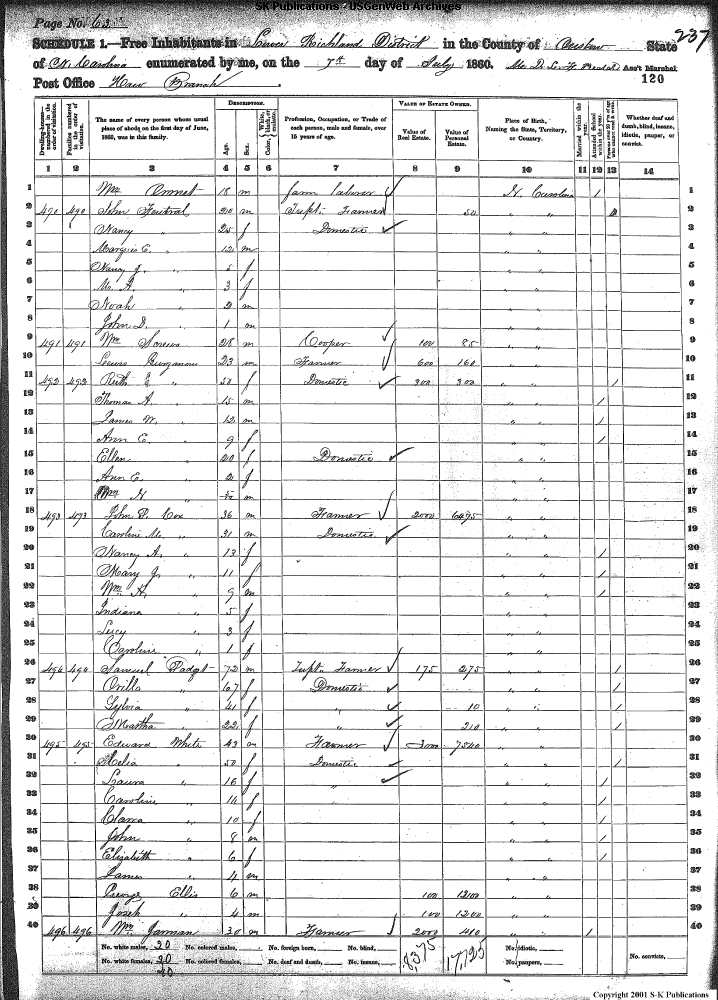 SK Publications - USGenWeb Archives
Page No. 62
237
SCHEDULE 1.—Free Inhabitants in Lower Richland District in the County of Onslow State
of N. Carolina enumerated by me, on the 7th day of July 1860. Ass't Marshal
Post Office Haw Branch.
120
DESCRIPTION.
VALUE OF ESTATE OWNED.
Dwelling-houses—numbered in the order of visitation.
Families numbered in the order of visitation.
The name of every person whose usual place of abode on the first day of June, 1860, was in this family.
Age.
Sex.
Color, White, black, or mulatto.
Profession, Occupation, or Trade of each person, male and female, over 15 years of age.
Value of Real Estate.
Value of Personal Estate.
Place of Birth, Naming the State, Territory, or Country.
Married within the year.
Attended School within the year.
Persons over 20 y'rs of age who cannot read & write.
Whether deaf and dumb, blind, insane, idiotic, pauper, or convict.
1 2 3 4 5 6 7 8 9 10 11 12 13 14
1 Wm 18 m farm laborer N. Carolina 1 1
2 490 490 John 20 m Farmer 50 " " 2
3 Nancy " 25 f Domestic " " 3
4 Marquis E. " 12 m " " 4
5 Nancy J. " f " " 5
6 M. A. " 3 f " " 6
7 Noah " 2 m " " 7
8 John D. " 1 m " " 8
9 491 491 Wm 28 m Cooper 100 85 " " 9
10 Lewis 23 m Farmer 600 160 " " 10
11 492 492 Ruth E. " 50 f Domestic 300 300 " " 1 11
12 Thomas A. " 15 m " " 1 12
13 James W. " 12 m " " 1 13
14 Ann E. " 9 f " " 1 14
15 Ellen " 20 f Domestic " " 15
16 Ann E. " 2 f " " 16
17 Wm H. " m " " 17
18 493 493 John P. Cox 36 m Farmer 2000 6495 " " 18
19 Caroline M. " 31 m Domestic " " 19
20 Nancy A. " 13 f " " 1 20
21 Mary J. " 11 f " " 1 21
22 Wm. H. " 9 m " " 1 22
23 Indiana " 5 f " " 23
24 Lucy " 3 f " " 24
25 Caroline " 1 f " " 25
26 494 494 Samuel Padget 72 m Farmer 175 275 " " 1 26
27 Orilla " 67 f Domestic " " 1 27
28 Sylvia " 41 f " 10 " " 1 28
29 Martha " 22 f " 210 " " 1 29
30 495 495 Edward White 43 m Farmer 3000 7540 " " 30
31 " 50 f Domestic " " 1 31
32 Laura " 16 f " " " 1 32
33 Caroline " 14 f " " 1 33
34 Clara " 10 f " " 1 34
35 John " 8 m " " 1 35
36 Elizabeth " 6 f " " 1 36
37 James " 4 m " " 37
38 George Ellis 6 m 100 1200 " " 38
39 Joseph " 4 m 100 1200 " " 39
40 496 496 Wm. Jarman 30 m Farmer 2000 410 " " 1 40
No. white males, 20 No. colored males, No. foreign born, No. blind, 8,375 17,125 No. idiotic,
No. white females, 20 No. colored females, No. deaf and dumb, No. insane, No. paupers, No. convicts,
40
Copyright 2001 S-K Publications